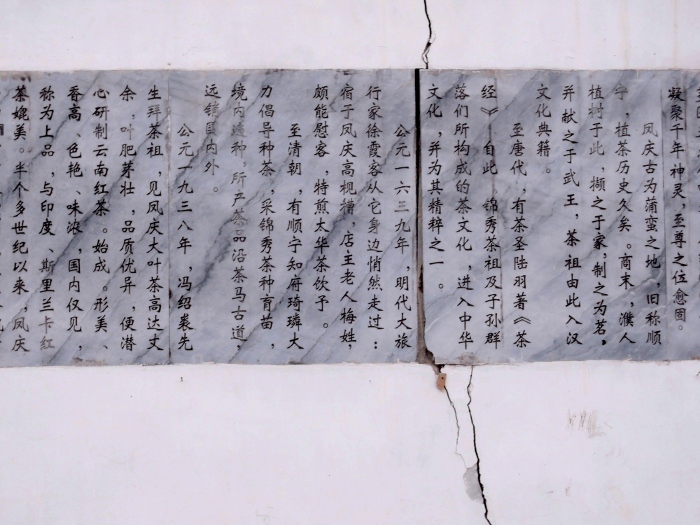 凝聚千年神灵，至尊之位愈固。
凤庆古为蒲蛮之地，旧称顺
宁，植茶历史久矣。商末，濮人
植树于此，撷之于家，制之为茗，
并献之于武王，茶祖由此入汉
文化典籍。
至唐代，有茶圣陆羽著《茶
经》，自此，锦秀茶祖及子孙群
落们所构成的茶文化，进入中华
文化，并为其精粹之一。
公元一六三九年，明代大旅
行家徐霞客从它身边悄然走过：
宿于凤庆高枧槽，店主老人梅姓，
颇能慰客，特煎太华茶饮予。
至清朝，有顺宁知府琦璘大
力倡导种茶，采锦秀茶种育苗，
境内遍种，所产茶品沿茶马古道
远销区内外。
公元一九三八年，冯绍裘先
生拜茶祖，见凤庆大叶茶高达丈
余，叶肥芽壮，品质优异，便潜
心研制云南红茶。始成。形美、
香高、色艳、味浓，国内仅见，
称为上品，与印度、斯里兰卡红
茶媲美。半个多世纪以来，凤庆